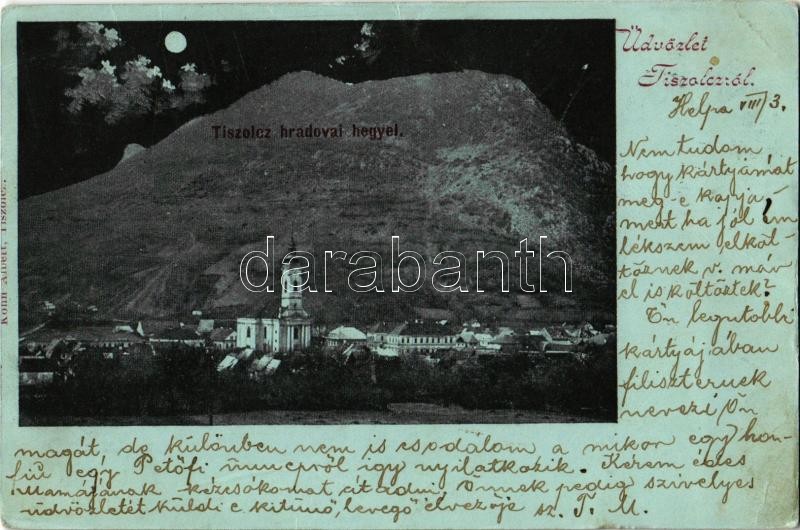 Üdvözlet
Tiszolczról.
Helpa VIII/3.
Tiszolcz hradovai hegyel.
Kohn Albert, Tiszolcz.
darabanth
Nem tudom
hogy kártyámat
meg-e kapja,
mert ha jól em
lékszem elköl
töznek v. már
el is költöztek?
Ön legutobbi
kártyájában
filiszternek
nevezi Ön
magát, de különben nem is csodálom a mikor egy hon-
fiu egy Petőfi ünnepről igy nyilatkozik. Kérem édes
mamájának kézcsókomat átadni, Önnek pedig szivelyes
üdvözletét küldi e kitünő "levegő" élvezője sz. T. M.